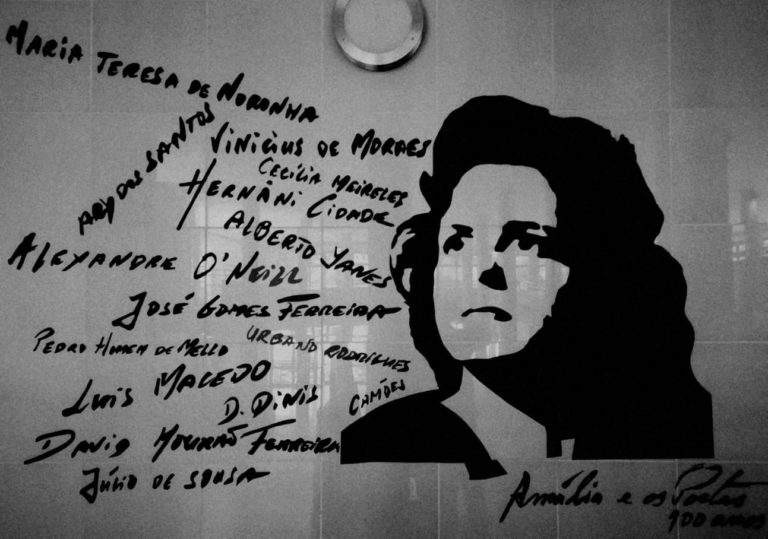 MARIA TERESA DE NORONHA
ARY DOS SANTOS
VINICIUS DE MORAES
CECÍLIA MEIRELES
HERNÂNI CIDADE
ALBERTO JANES
ALEXANDRE O'NEILL
JOSÉ GOMES FERREIRA
PEDRO HOMEM DE MELLO
URBANO RODRIGUES
LUIS MACEDO
D. DINIS
CAMÕES
DAVID MOURÃO FERREIRA
JÚLIO DE SOUSA
Amália e os Poetas
100 anos